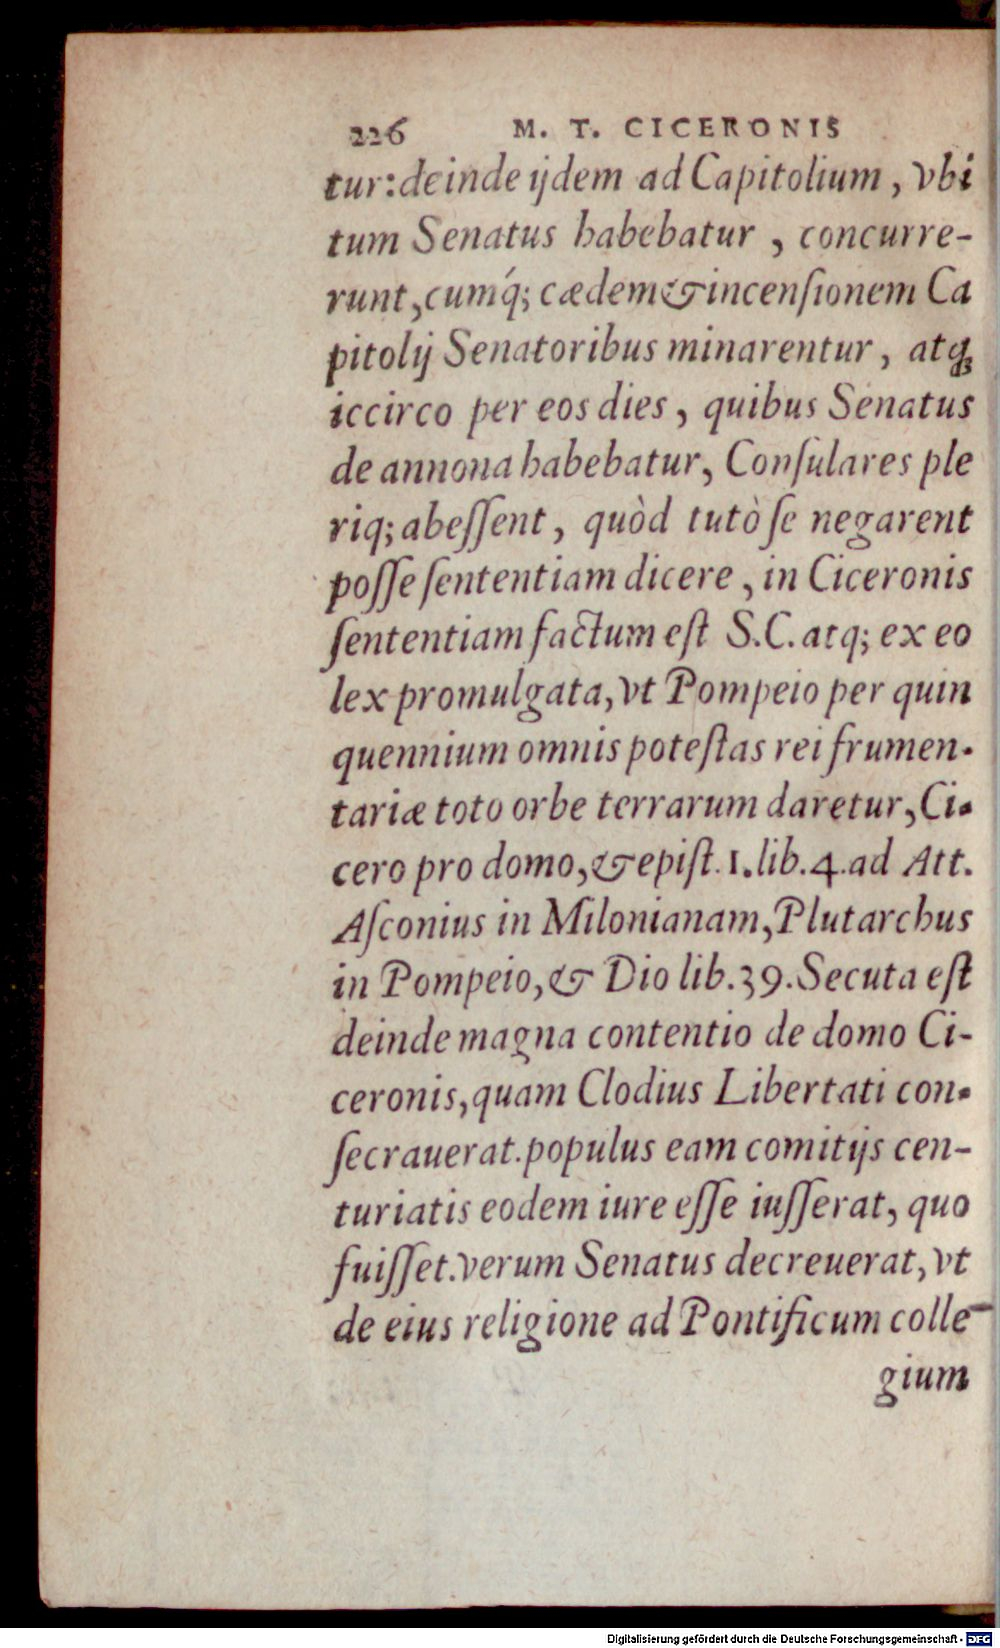 226 M. T. CICERONIS
tur: deinde ijdem ad Capitolium, vbi
tum Senatus habebatur, concurre-
runt, cumq́; cædem & incenſionem Ca
pitolij Senatoribus minarentur, atq;
iccirco per eos dies, quibus Senatus
de annona habebatur, Conſulares ple
riq; abeſſent, quòd tutò ſe negarent
poſſe ſententiam dicere, in Ciceronis
ſententiam factum eſt S.C. atq; ex eo
lex promulgata, vt Pompeio per quin
quennium omnis poteſtas rei frumen-
tariæ toto orbe terrarum daretur, Ci-
cero pro domo, & epiſt. 1. lib. 4. ad Att.
Aſconius in Milonianam, Plutarchus
in Pompeio, & Dio lib. 39. Secuta eſt
deinde magna contentio de domo Ci-
ceronis, quam Clodius Libertati con-
ſecrauerat. populus eam comitijs cen-
turiatis eodem iure eſſe iuſſerat, quo
fuiſſet. verum Senatus decreuerat, vt
de eius religione ad Pontificum colle-
gium
Digitalisierung gefördert durch die Deutsche Forschungsgemeinschaft - DFG